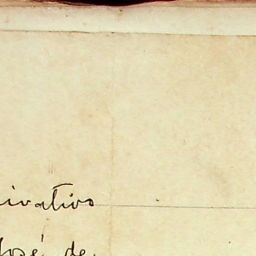 ivativo
José de